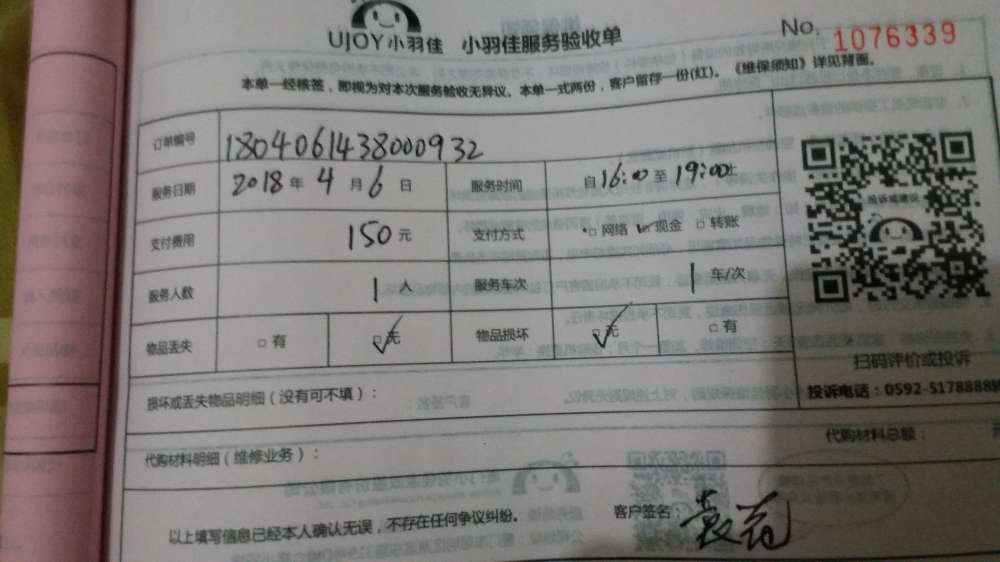 UJOY小羽佳 小羽佳服务验收单 No. 1076339
本单一经核签，即视为对本次服务验收无异议、本单一式两份，客户留存一份(红)。《维保须知》详见背面。
订单编号 1804061438000932
服务日期 2018 年 4 月 6 日 服务时间 自 16:00 至 19:00 止
投诉或建议
支付费用 150 元 支付方式 □ 网络 ☑ 现金 □ 转账
服务人数 1 人 服务车次 1 车/次
物品丢失 □ 有 ☑ 无 物品损坏 ☑ 无 □ 有
扫码评价或投诉
损坏或丢失物品明细（没有可不填）：
投诉电话：0592-5178888
代购材料明细（维修业务）：
代购材料总额：
以上填写信息已经本人确认无误，不存在任何争议纠纷。 客户签名：